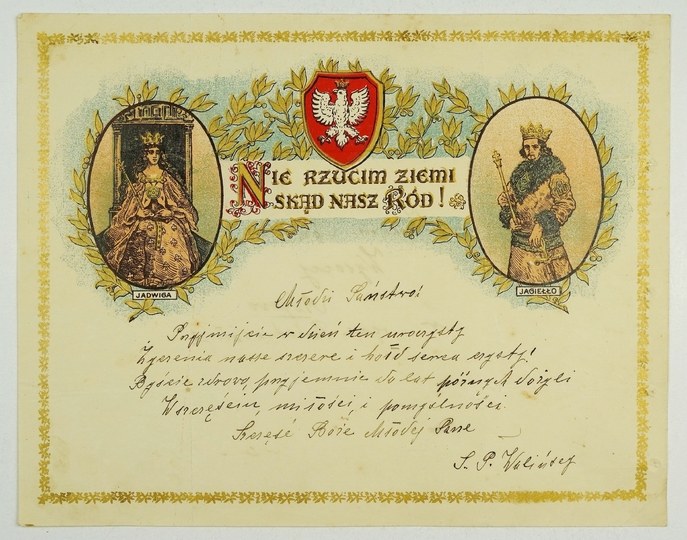 NIE RZUCIM ZIEMI
SKĄD NASZ RÓD!
JADWIGA
JAGIEŁŁO
Młodzi Państwo!
Przyjmijcie w dzień ten uroczysty
Życzenia nasze szczere i hołd serca czysty!
Byście zdrowo, przyjemnie do lat późnych dożyli
W szczęściu, miłości, i pomyślności.
Szczęść Boże Młodej Parze
S. P. Walińscy